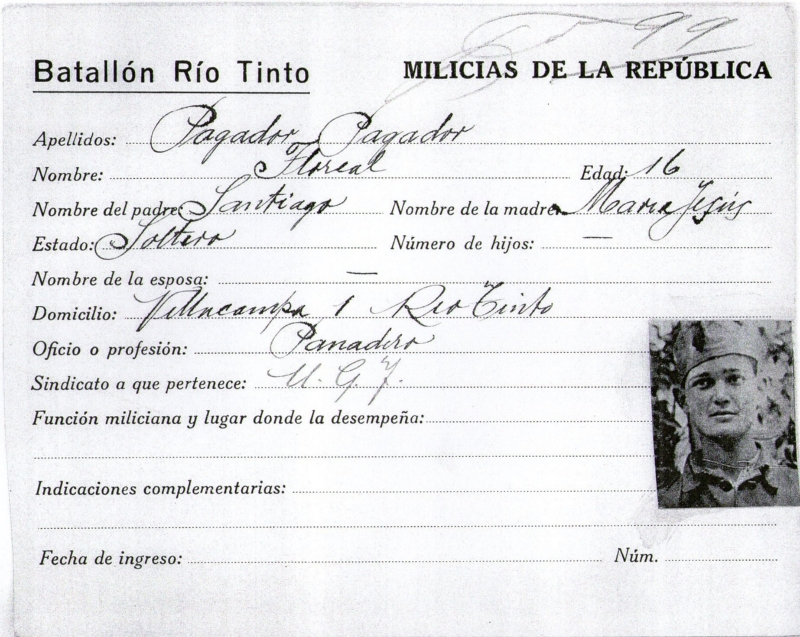 99
Batallón Río Tinto MILICIAS DE LA REPÚBLICA
Apellidos: Pagador Pagador
Nombre: Floreal Edad: 16
Nombre del padre: Santiago Nombre de la madre: Maria Jesús
Estado: Soltero Número de hijos: —
Nombre de la esposa: —
Domicilio: Villacampa 1 Rio Tinto
Oficio o profesión: Panadero
Sindicato a que pertenece: U. G. T.
Función miliciana y lugar donde la desempeña:
Indicaciones complementarias:
Fecha de ingreso: Núm.